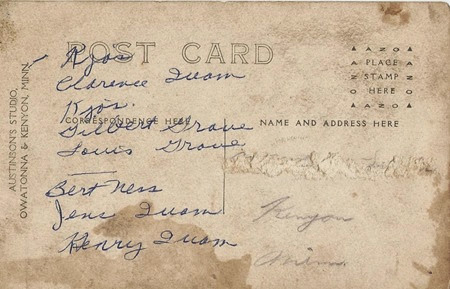 POST CARD
AUSTINSON'S STUDIO,
OWATONNA & KENYON, MINN.
Kjos
Clarence Quam
Kjos.
CORRESPONDENCE HERE
Gilbert Grove
Louis Grove
Bert Ness
Jens Quam
Henry Quam
AZO
PLACE
STAMP
HERE
AZO
NAME AND ADDRESS HERE
Kenyon
Minn.